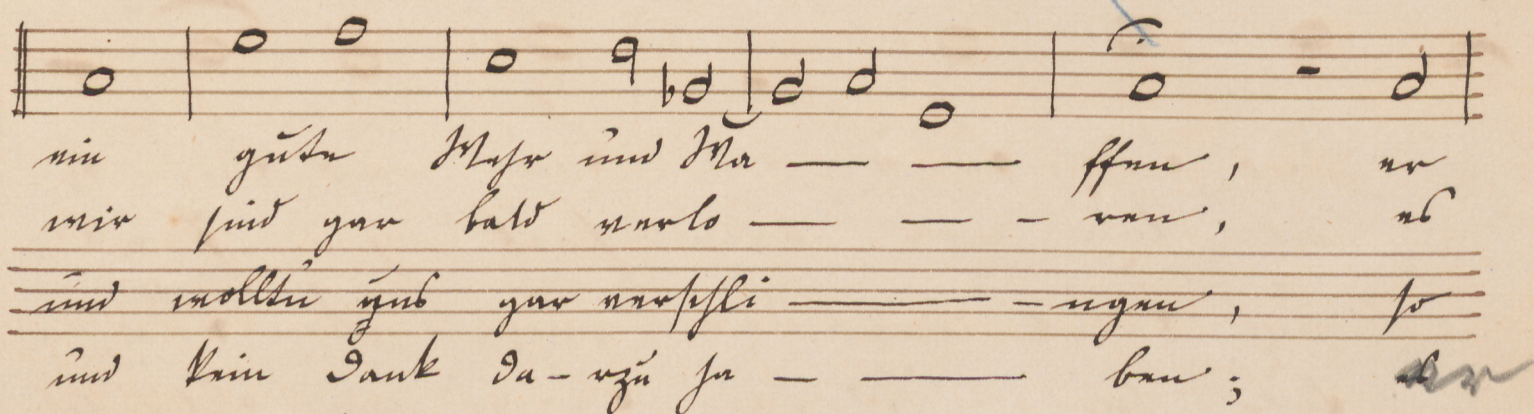 ein gute Wehr und Wa — — ffen, er
wir sind gar bald verlo — — - ren, es
und wollt'n uns gar verschli — - ngen, so
und kein Dank da-rzu ha - — ben; er